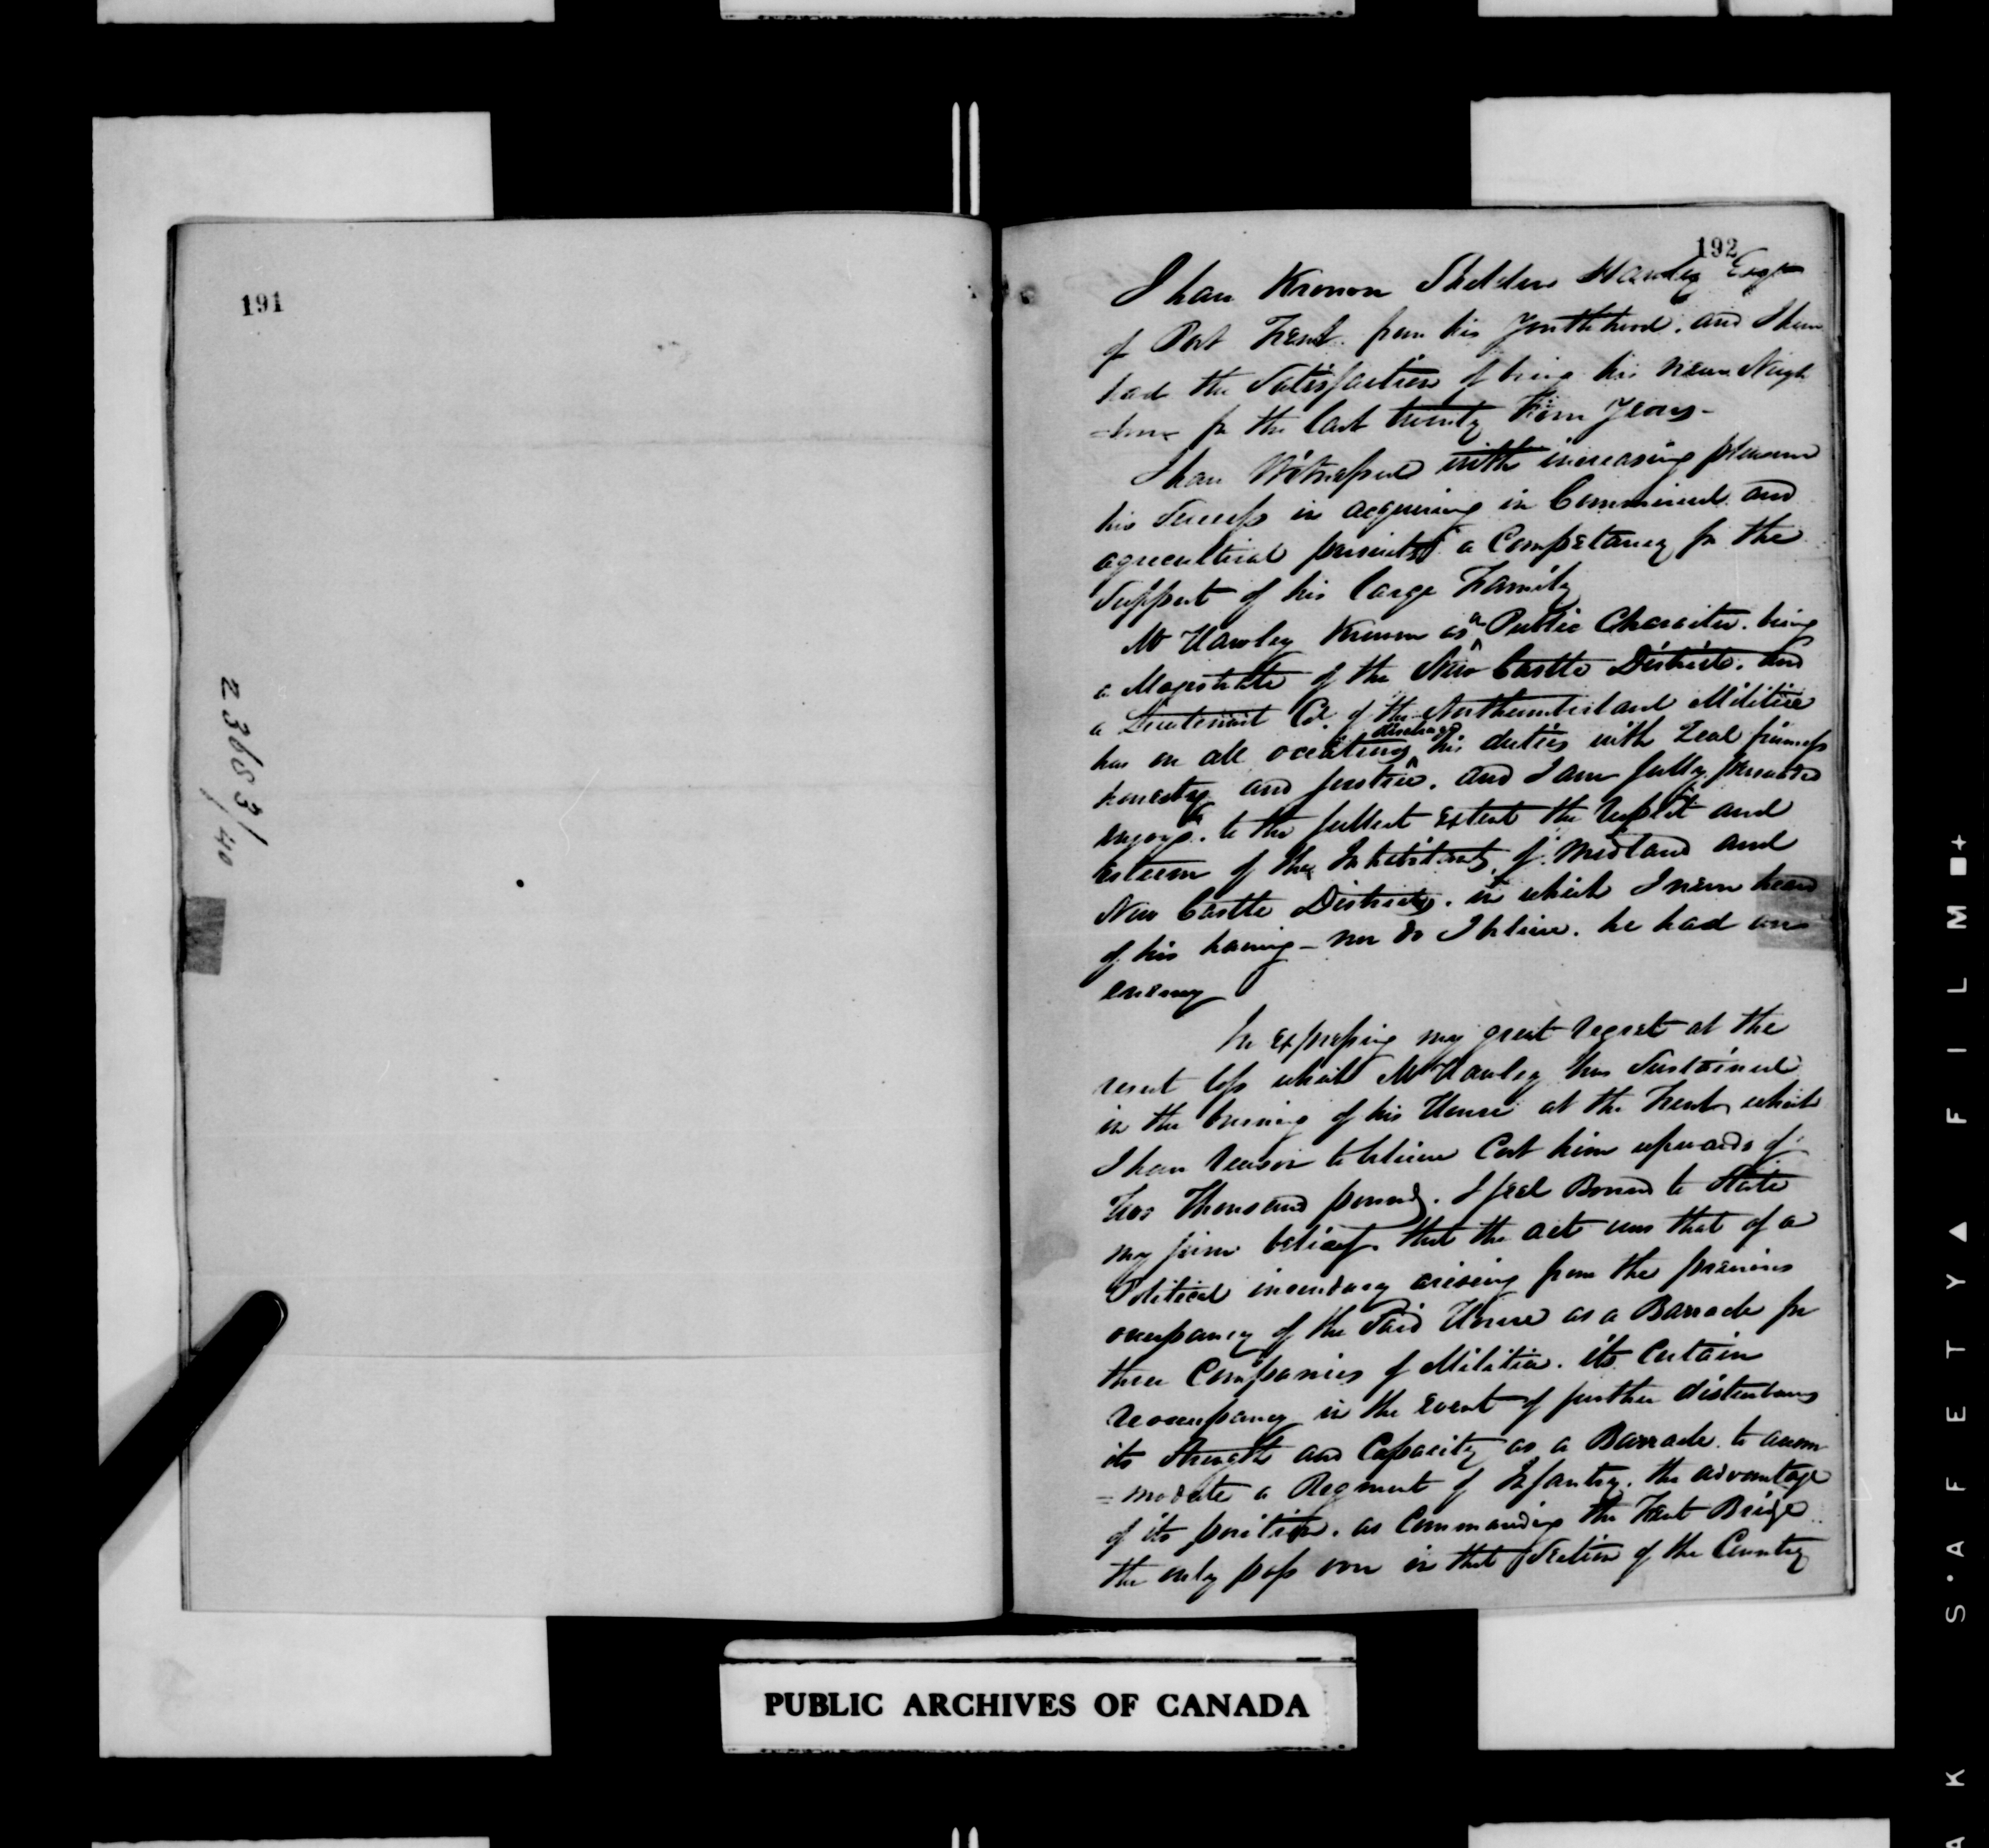 191
23653/40
192
I have Known Sheldon Hawley Esqr
of Port Trent from his Youthhood, and I have
had the Satisfaction of being his near Neigh
=bour for the last twenty Years-
I have Witnessed with increasing pleasure
his Success in acquiring in Commercial and
agricultural pursuits a Competancy for the
Support of his large Family
Mr Hawley Known as a Public Character. being
a Magistrate of the New Castle District, and
a Lieutenant Col. of the Northumberland Militia
has on all occations discharged his duties with Zeal firmness
honesty and justice. and I am fully persuaded
enjoys. to the fullest Extent the respect and
esteem of the Inhabitants of Midland and
New Castle Districts. in which I never heard
of his having - nor do I believe. he had an
enemy
In expressing my great regret at the
resent loss which Mr Hawley has Sustained
in the burning of his House at the Trent, which
I have reason to believe Cost him upwards of
Two Thousand pounds. I feel Bound to State
my firm belief. that the act was that of a
Political incendiary arising from the previous
occupancy of the Said House as a Barrack for
three Companies of Militia. its Certain
reoccupancy in the event of further disturbances
its Strength and Capacity as a Barrack. to accom
=modate a Regment of Infantry. the advantage
of its position. as Commanding the Trent Bridge
the only pass over in that Section of the Country
PUBLIC ARCHIVES OF CANADA
K S.AFETY▲FILM■+